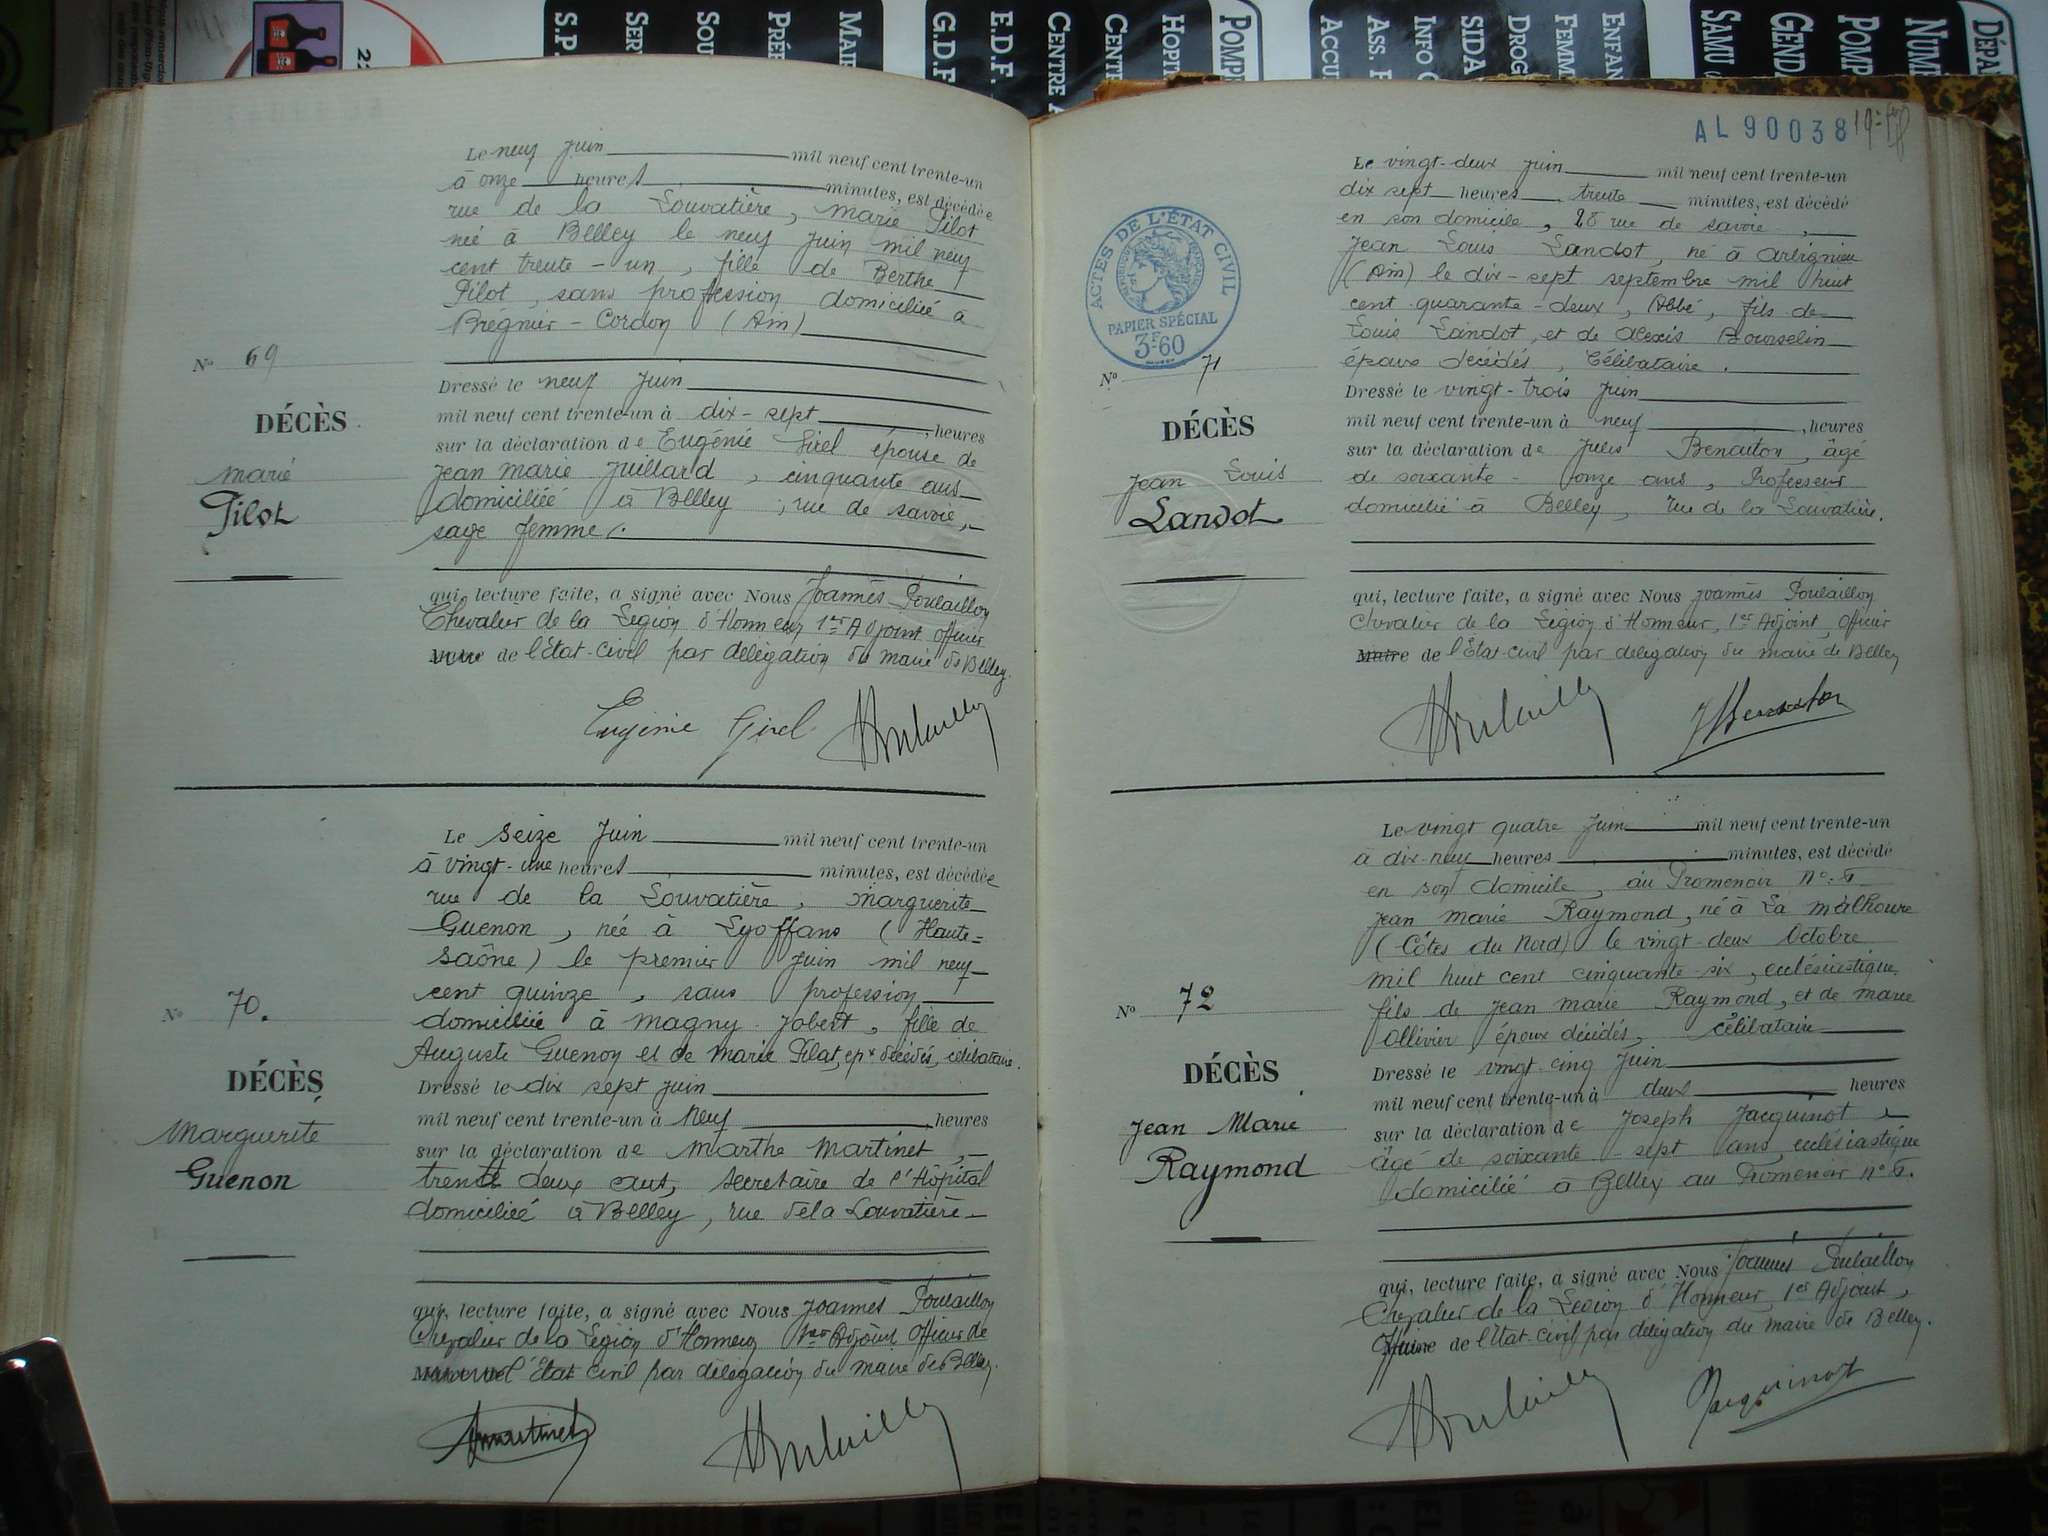 S.P.
SER
SOU
PRÉ
MAIR
G.D.F.
E.D.F.
CENTRE A
CENT
HOPIT
POMPI
ACCU
ASS. F
INFO
SIDA
DROG
FEMM
ENFAN
SAMU
GENDA
POMP
NUM
DÉPA
AL 90038
Le neuf Juin mil neuf cent trente-un
à onze heures minutes, est décédée
rue de la Louvatière, Marie Pilot
née à Belley le neuf Juin mil neuf
cent trente-un, fille de Berthe
Pilot, sans profession domiciliée à
Brégnier-Cordon (Ain)
No 69
DÉCÈS
Marie
Pilot
Dressé le neuf Juin
mil neuf cent trente-un à dix-sept heures
sur la déclaration de Eugénie Girel épouse de
Jean Marie Juillard, cinquante ans
domiciliée à Belley, rue de Savoie,
sage femme.
qui, lecture faite, a signé avec Nous Joannès Poulaillon
Chevalier de la Légion d'Honneur 1er Adjoint officier
de l'État-civil par délégation du maire de Belley.
Eugénie Girel
Le seize Juin mil neuf cent trente-un
à vingt-une heures minutes, est décédée
rue de la Louvatière, Marguerite
Guenon, née à Lyoffans (Haute=
Saône) le premier Juin mil neuf
cent quinze, sans profession
domiciliée à Magny Jobert, fille de
Auguste Guenon et de Marie Pilat, epx décédés, célibataire.
No 70.
DÉCÈS
Marguerite
Guenon
Dressé le dix sept Juin
mil neuf cent trente-un à Neuf heures
sur la déclaration de Marthe Martinet,
trente deux ans, secrétaire de l'Hôpital
domiciliée à Belley, rue de la Louvatière
qui, lecture faite, a signé avec Nous Joannès Poulaillon
Chevalier de la Légion d'Honneur 1er Adjoint officier de
l'État civil par délégation du maire de Belley.
Martinet
ACTES DE L'ÉTAT CIVIL
PAPIER SPÉCIAL
3F60
Le vingt-deux Juin mil neuf cent trente-un
dix sept heures trente minutes, est décédé
en son domicile, 28 rue de Savoie,
Jean Louis Landot, né à Arbignieu
(Ain) le dix-sept septembre mil huit
cent quarante-deux, Abbé, fils de
Louis Landot, et de Alexis Bourselin
époux décédés, Célibataire.
No 71
DÉCÈS
Jean Louis
Landot
Dressé le vingt-trois Juin
mil neuf cent trente-un à neuf heures
sur la déclaration de Jules Benatton, âgé
de soixante-onze ans, Professeur
domicilié à Belley, rue de la Louvatière.
qui, lecture faite, a signé avec Nous Joannès Poulaillon
Chevalier de la Légion d'Honneur, 1er Adjoint, Officier
Maire de l'État civil par délégation du maire de Belley
Le vingt quatre Juin mil neuf cent trente-un
à dix-neuf heures minutes, est décédé
en son domicile, au Promenoir No
Jean Marie Raymond, né à La Malhoure
(Côtes du Nord) le vingt-deux Octobre
mil huit cent cinquante-six, ecclésiastique
fils de Jean Marie Raymond, et de Marie
Ollivier époux décédés, célibataire
No 72
DÉCÈS
Jean Marie
Raymond
Dressé le vingt-cinq Juin
mil neuf cent trente-un à deux heures
sur la déclaration de Joseph Jacquinot
âgé de soixante-sept ans, ecclésiastique
domicilié à Belley au Promenoir No
qui, lecture faite, a signé avec Nous Joannès Poulaillon
Chevalier de la Légion d'Honneur, 1er Adjoint,
Officier de l'État-civil par délégation du maire de Belley.
Jacquinot